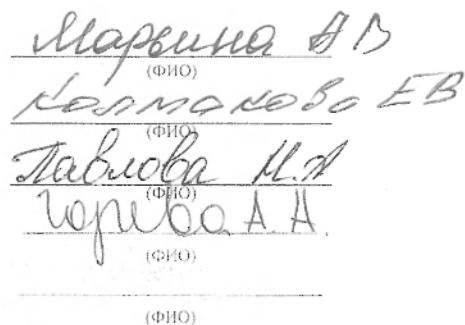 Марьина А В
(ФИО)
Колмакова Е В
(ФИО)
Павлова Н.А
(ФИО)
Горева А.Н.
(ФИО)
(ФИО)